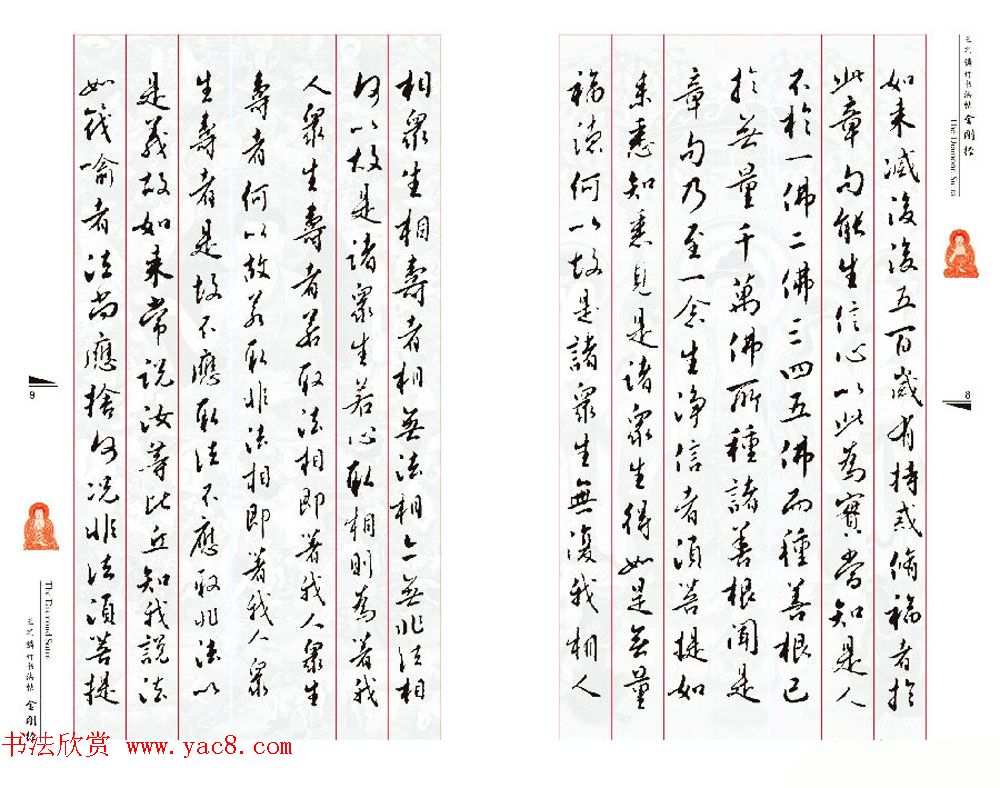 金刚经
The Diamond Sutra
8
如来滅後後五百歲有持戒脩福者於
此章句能生信心以此為實當知是人
不於一佛二佛三四五佛而種善根已
於無量千萬佛所種諸善根聞是
章句乃至一念生淨信者須菩提如
来悉知悉見是諸眾生得如是無量
福德何以故是諸眾生無復我相人
相眾生相壽者相無法相亦無非法相
何以故是諸眾生若心取相則為著我
人眾生壽者若取法相即著我人眾生
壽者何以故若取非法相即著我人眾
生壽者是故不應取法不應取非法以
是義故如来常說汝等比丘知我說法
如筏喻者法尚應捨何況非法須菩提
9
The Diamond Sutra
金刚经
书法欣赏 www.yac8.com